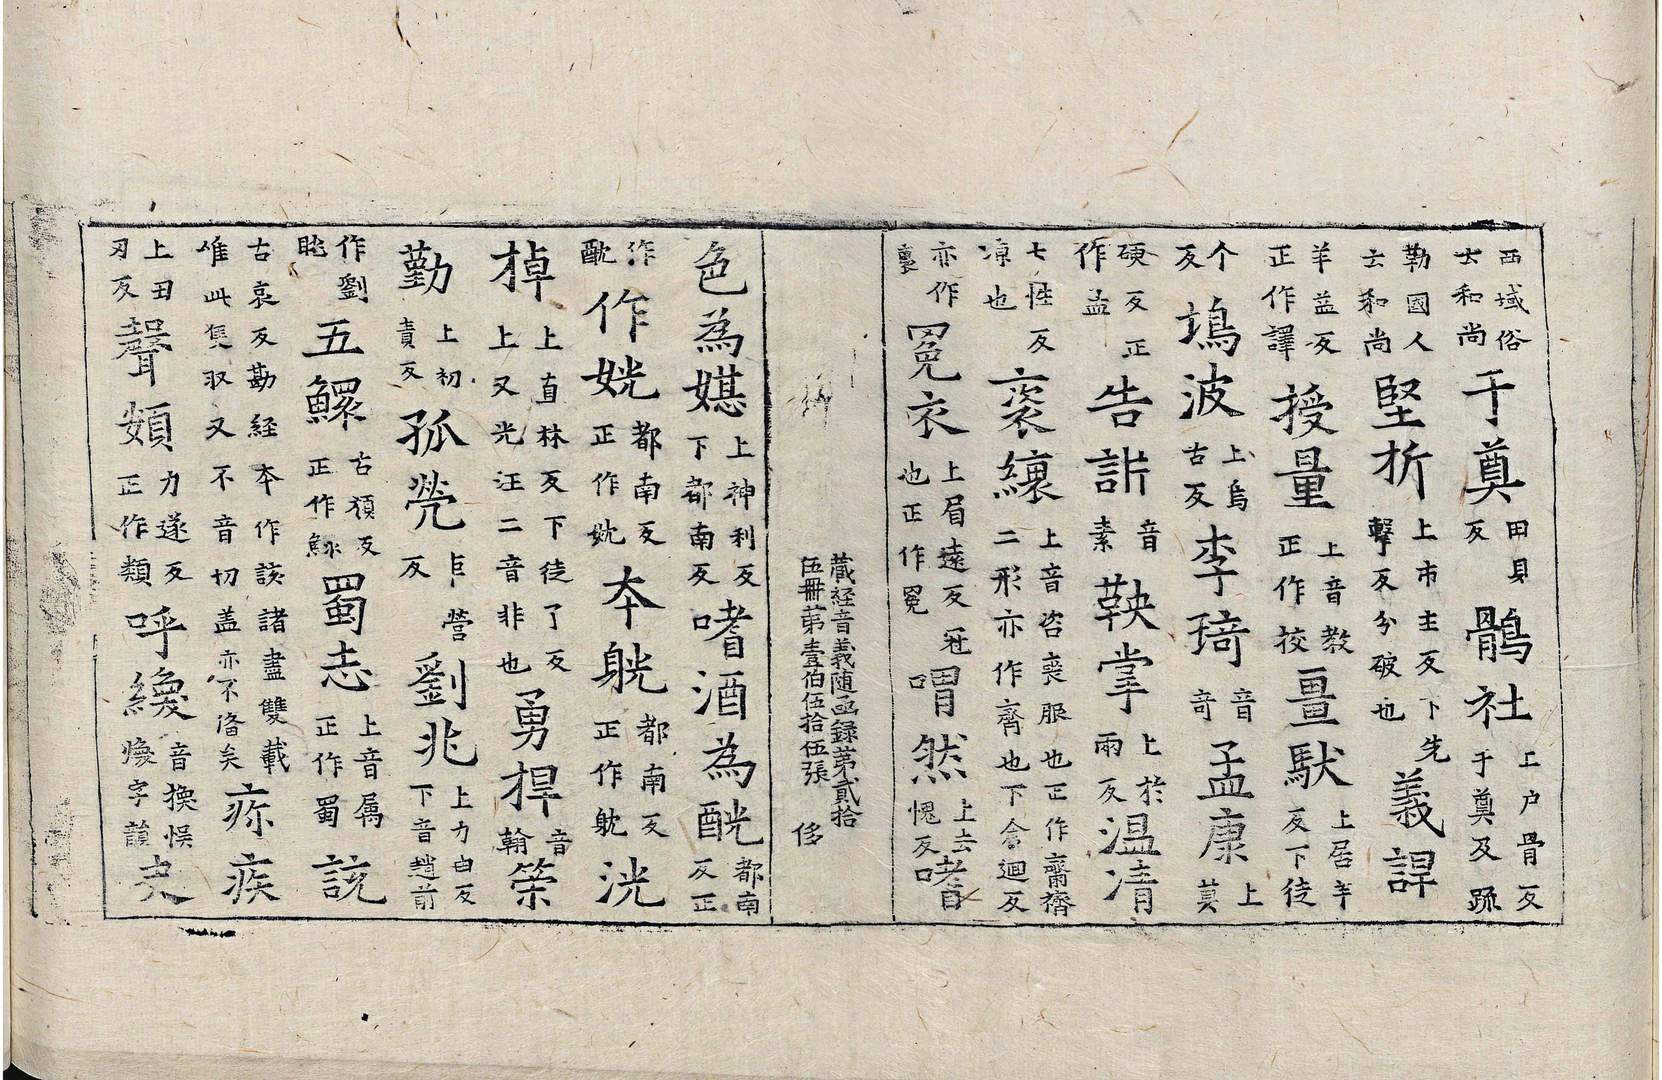 西域俗云和尚于奠田見反鶻社上户骨反于奠及踈
勒國人云和尚堅析上市主反下先擊反分破也義諢
羊益反正作譯授量上音教正作挍畺馱上居羊反下徒
个反塢波上烏古反李琦音奇孟康上莫
硬反正作孟告訴音素鞅掌上於兩反温凊
七性反凍也衮纕上音咨喪服也正作齋齊二形亦作齊也下倉迴反
亦作冕衣上眉遠反冠也正作冕喟然上去愧反嗜
藏經音義随函録第貳拾伍冊第壹伯伍拾伍張 侈
色為媅上神利反下都南反嗜酒為酖都南反正
作酖作妩都南反正作妉本躭都南反正作躭洸
棹上直林反下徒了反上又光汪二音非也勇桿音翰策
勤上初責反孤焭巨營反劉兆上力由反下音趙前
作劉晀五鰥古頑反正作鰥蜀志上音属正作蜀該
古哀反勘経本作該諸盡雙載唯此隻収又不音切盖亦不俻矣疢疾
上田刃反聲頪力遂反正作類呼緣音換悮煥字韻夫